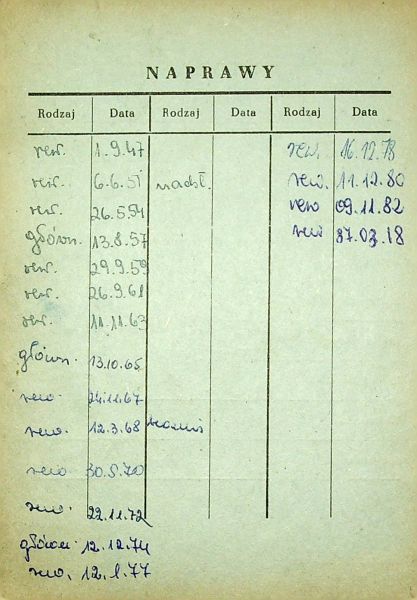 NAPRAWY
Rodzaj Data Rodzaj Data Rodzaj Data
rew. 1.9.47
rew. 6.6.51
rew. 26.5.54
główn. 13.8.57
rew. 29.9.59
rew. 26.9.61
rew. 11.11.63
główn. 13.10.65
rew. 24.11.67
rew. 12.3.68
rew. 30.5.70
rew. 22.11.72
główn. 12.12.74
rew. 12.1.77
rew. 16.12.78
rew. 11.12.80
rew 09.11.82
rew